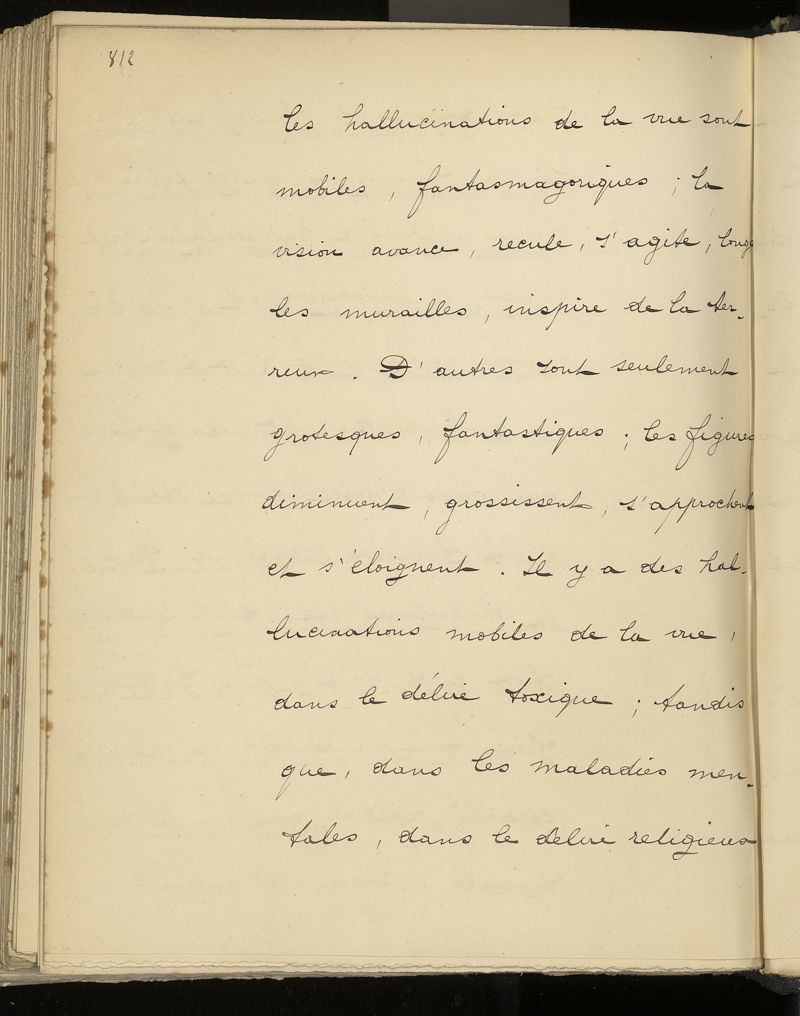 812
les hallucinations de la vue sont
mobiles, fantasmagoriques ; la
vision avance, recule, s'agite, longe
les murailles, inspire de la ter-
reur. D'autres sont seulement
grotesques, fantastiques ; les figures
diminuent, grossissent, s'approchent
et s'éloignent. Il y a des hal-
lucinations mobiles de la vue,
dans le délire toxique ; tandis
que, dans les maladies men-
tales, dans le délire religieux